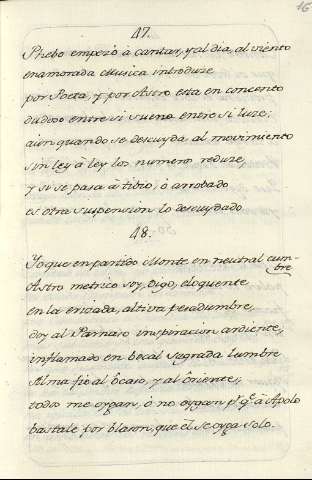 16
47.
Phebo empezò à cantar, y al dia, al viento
enamorada Musica introduze
por Poeta, y por Astro esta en concento
dudoso entre si suena entre si luze;
aùn quando se descuyda al movimiento
sin ley à ley los numeros reduze,
y si se para à tibio, ò arrobado
es otra suspension lo descuydado.
48.
Yo que en partido Monte en neutral cumbre
Astro metrico soy, Digo, eloquente
en la erizada, altiva pesadumbre,
doy al Parnaso inspiracion ardiente,
inflamado en bocal sagrada lumbre
Alma fie al Ocaso, y al Oriente;
todos me oygan, ò no oygan pr. q. à Apolo
bastale por blason, que èl se oyga solo.